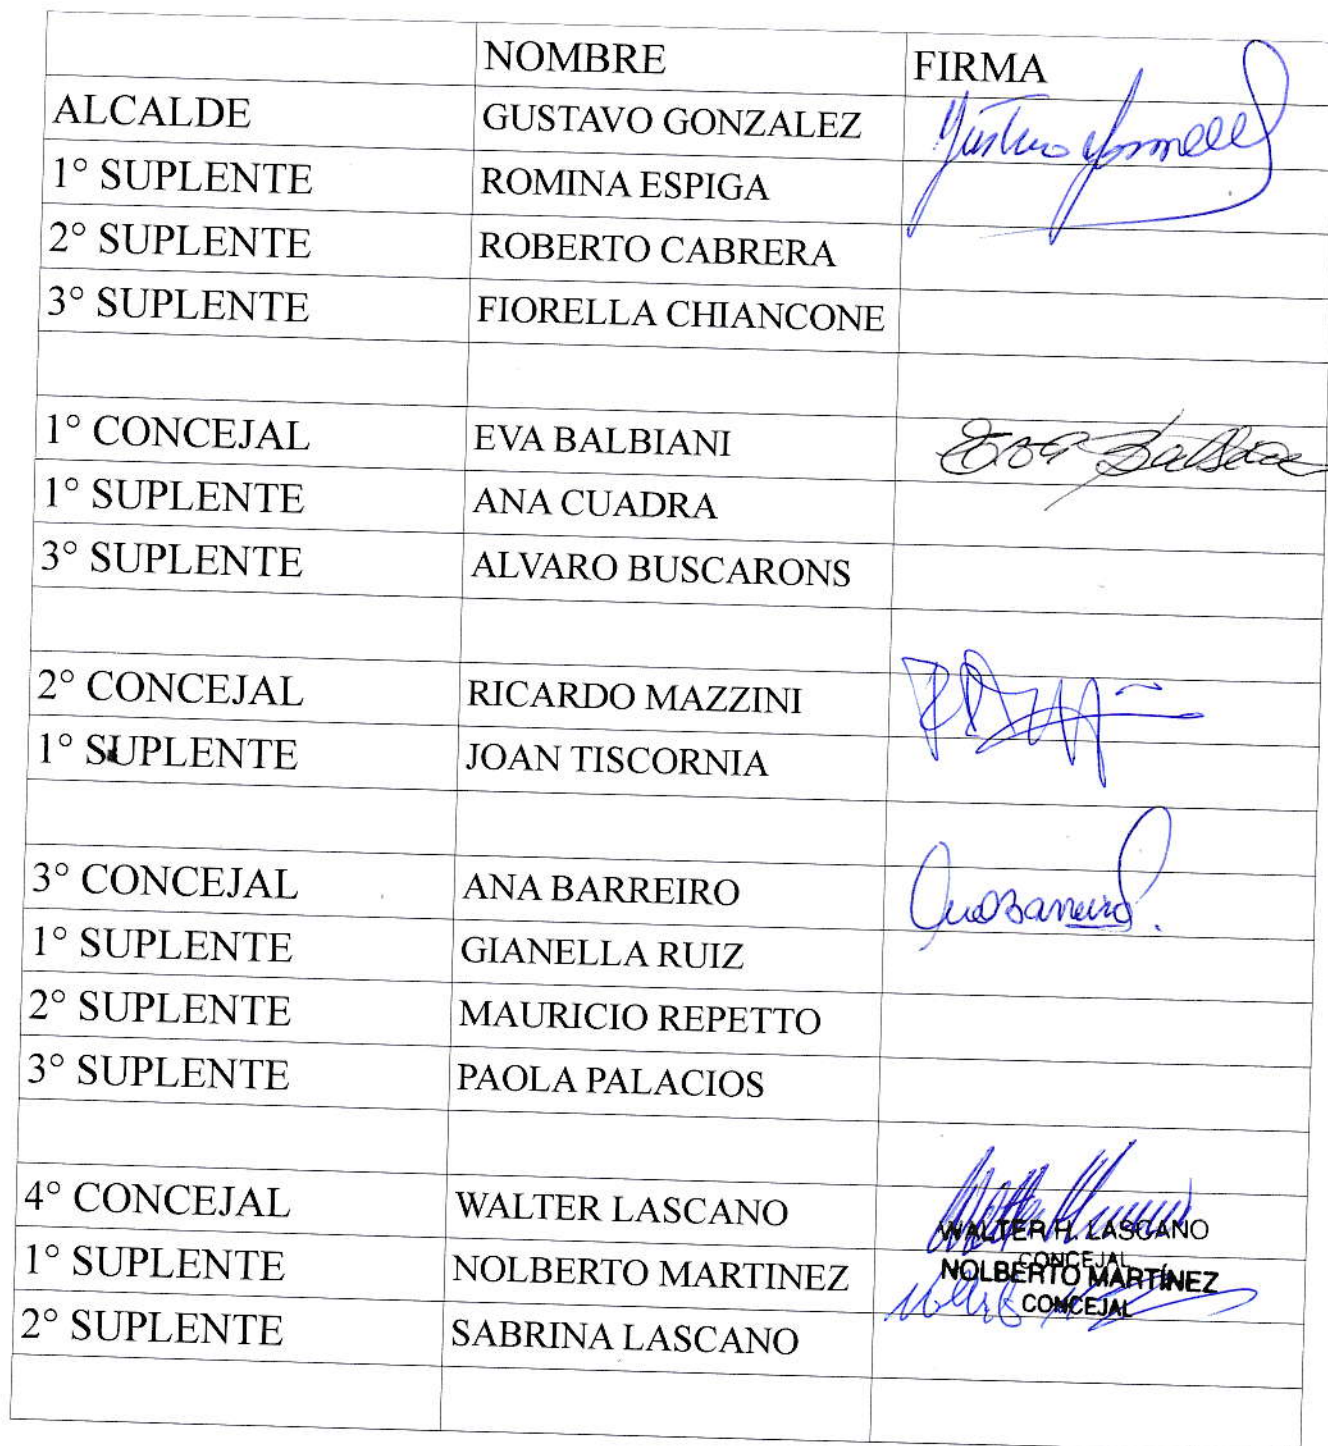 NOMBRE FIRMA
ALCALDE GUSTAVO GONZALEZ Gustavo Gonzalez
1° SUPLENTE ROMINA ESPIGA
2° SUPLENTE ROBERTO CABRERA
3° SUPLENTE FIORELLA CHIANCONE
1° CONCEJAL EVA BALBIANI Eva Balbiani
1° SUPLENTE ANA CUADRA
3° SUPLENTE ALVARO BUSCARONS
2° CONCEJAL RICARDO MAZZINI
1° SUPLENTE JOAN TISCORNIA
3° CONCEJAL ANA BARREIRO Ana Barreiro.
1° SUPLENTE GIANELLA RUIZ
2° SUPLENTE MAURICIO REPETTO
3° SUPLENTE PAOLA PALACIOS
4° CONCEJAL WALTER LASCANO WALTER H. LASCANO
CONCEJAL
1° SUPLENTE NOLBERTO MARTINEZ NOLBERTO MARTÍNEZ
CONCEJAL
2° SUPLENTE SABRINA LASCANO